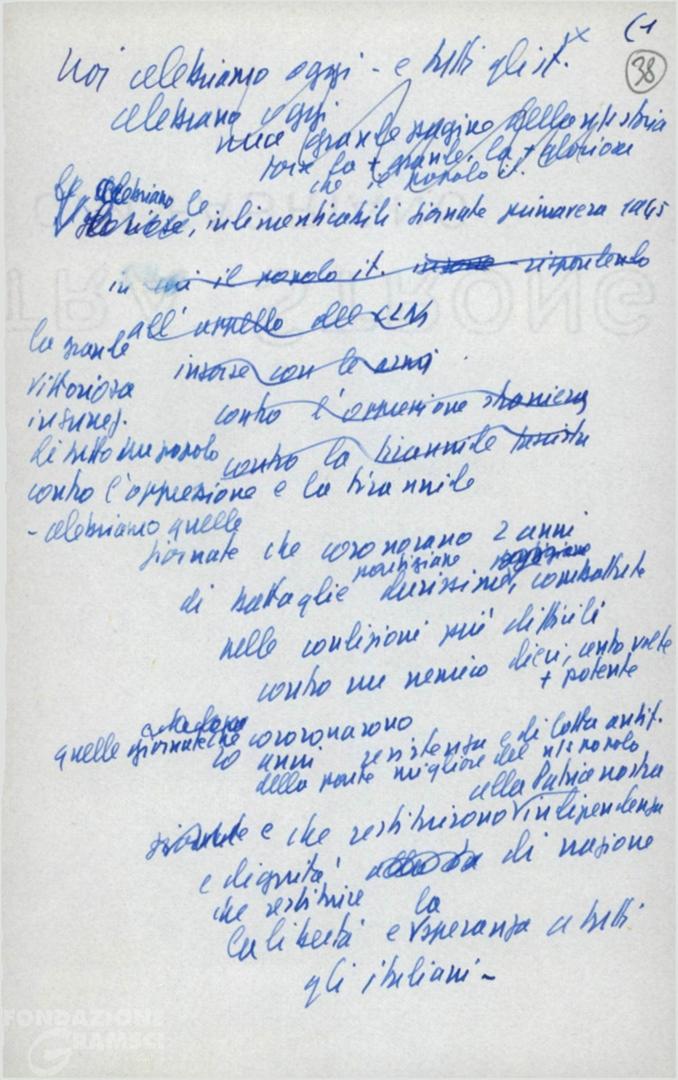 (1
38
Noi celebriamo oggi - e tutti gli it. x
celebrano oggi
una grande pagina della ns storia
forse la + grande, la + gloriosa
che il popolo it.
celebriamo le
gloriose, indimenticabili giornate primavera 1945
in cui il popolo it. insorse rispondendo
all'appello del CLN
insorse con le armi
contro l'oppressione straniera
contro la tirannide fascista
la grande
vittoriosa
insurrez.
di tutto un popolo
contro l'oppressione e la tirannide
- celebriamo quelle
giornate che coronarono 2 anni
di battaglie partigiane durissime, combattute
nelle condizioni più difficili
contro un nemico dieci, cento volte
+ potente
quelle giornate che coronarono
20 anni resistenza e di lotta antif.
della parte migliore del ns popolo
alla Patria nostra
e che restituirono indipendenza
e dignità di nazione
che restituire
la libertà e la speranza a tutti
gli italiani -
FONDAZIONE
GRAMSCI